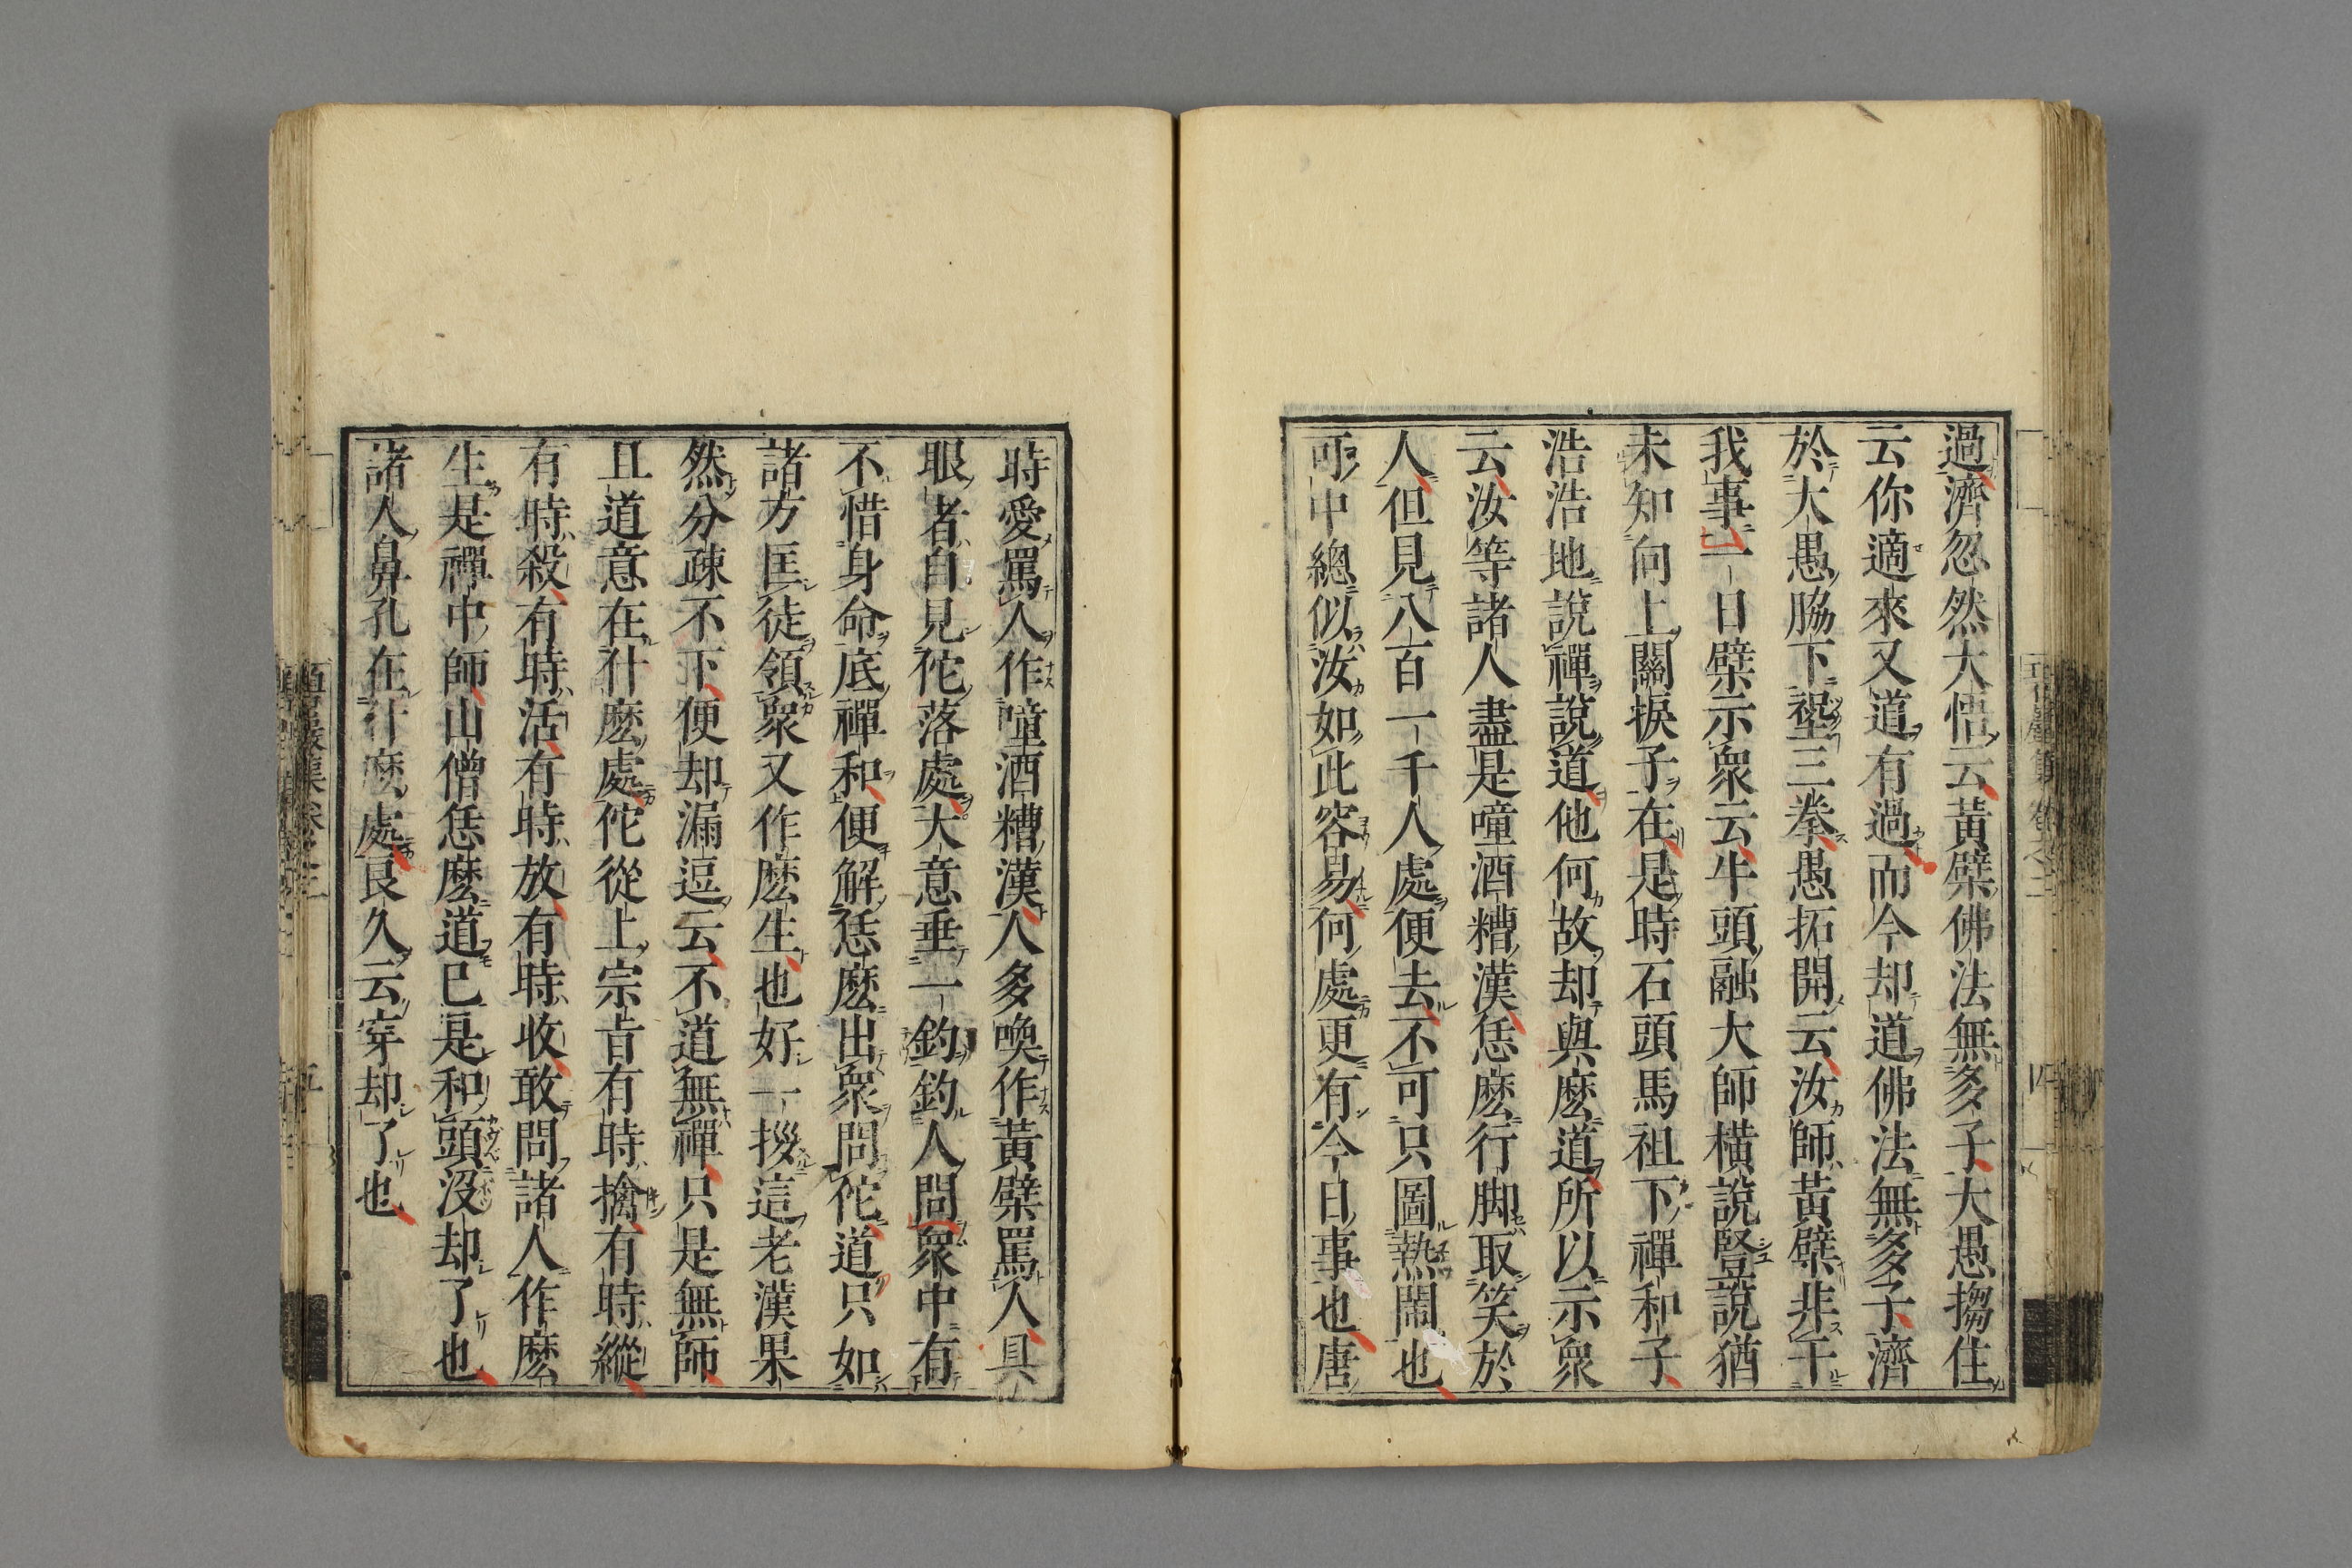 過濟忽然大悟云黃檗佛法無多子大愚搊住
云你適來又道有過而今却道佛法無多子濟
於大愚脇下𡎺三拳愚拓開云汝師黃檗非干
我事一日檗示衆云牛頭融大師橫說豎說猶
未知向上關捩子在是時石頭馬祖下禪和子
浩浩地說禪說道他何故却與麼道所以示衆
云汝等諸人盡是噇酒糟漢恁麼行脚取笑於
人但見八百一千人處便去不可只圖熱鬧也
可中總似汝如此容易何處更有今日事也唐
時愛罵人作噇酒糟漢人多喚作黃檗罵人具
眼者自見佗落處大意垂一釣釣人問衆中有
不惜身命底禪和便解恁麼出衆問佗道只如
諸方匡徒領衆又作麼生也好一拶這老漢果
然分疎不下便却漏逗云不道無禪只是無師
且道意在什麼處佗從上宗旨有時擒有時縱
有時殺有時活有時放有時收敢問諸人作麼
生是禪中師山僧恁麼道已是和頭沒却了也
諸人鼻孔在什麼處良久云穿却了也